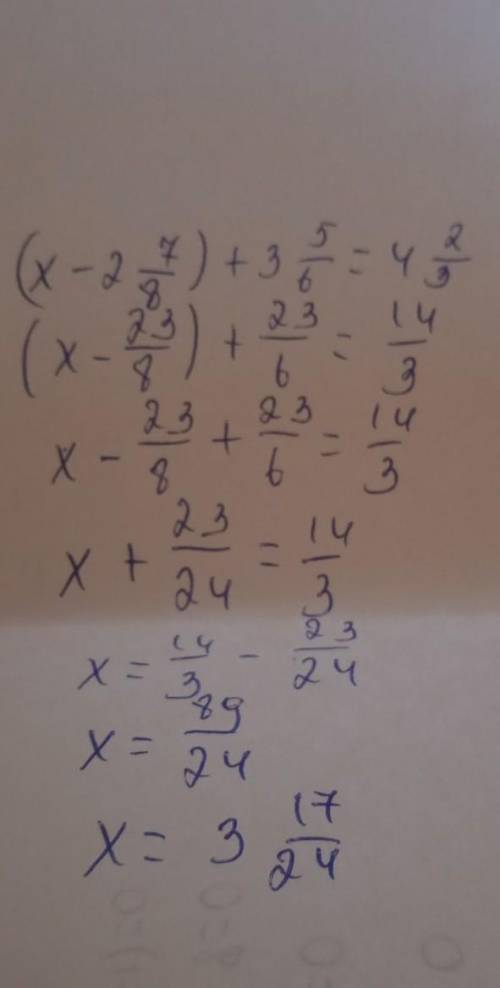 (x - 2 7/8) + 3 5/6 = 4 2/3
(x - 23/8) + 23/6 = 14/3
x - 23/8 + 23/6 = 14/3
x + 23/24 = 14/3
x = 14/3 - 23/24
x = 89/24
x = 3 17/24